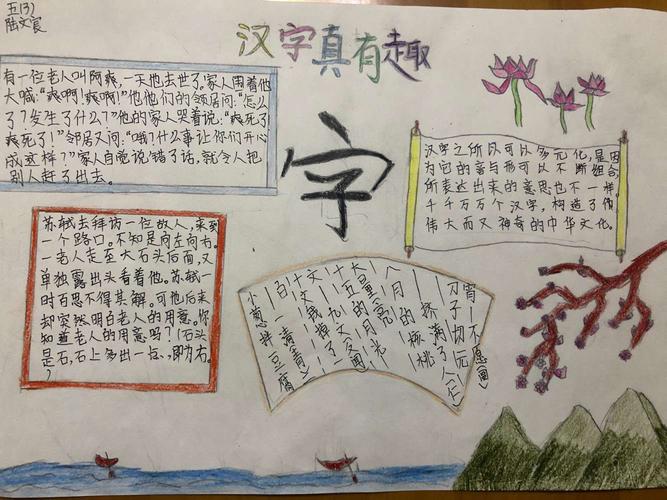 五(3)
陆文宸
汉字真有趣
有一位老人叫阿爽,一天他去世了。家人围着他
大喊:“爽啊!爽啊!”他他们的邻居问:“怎么
了?发生了什么?”他的家人哭着说:“爽死了
爽死了!”邻居又问:“哦?什么事让你们开心
成这样?”家人自觉说错了话,就令人把
别人赶了出去。
字
汉字之所以可以多元化,是因
为它的音与形可以不断组合,
所表达出来的意思也不一样。
千千万万个汉字,构造了伟
伟大而又神奇的中华文化。
苏轼去拜访一位故人,来到
一个路口。不知是向左向右。
一老人走至大石头后面,又
单独露出头看着他。苏轼一
时百思不得其解。可他后来
却突然明白老人的用意。你
知道老人的用意吗?(石头
是石,石上多出一点、,即为右。
)
小葱拌豆腐
一清(青)
十文钱掉了
十五的月光
八月的核桃
挤满了人(仁)
刀子切元
宵—不愿(圆)